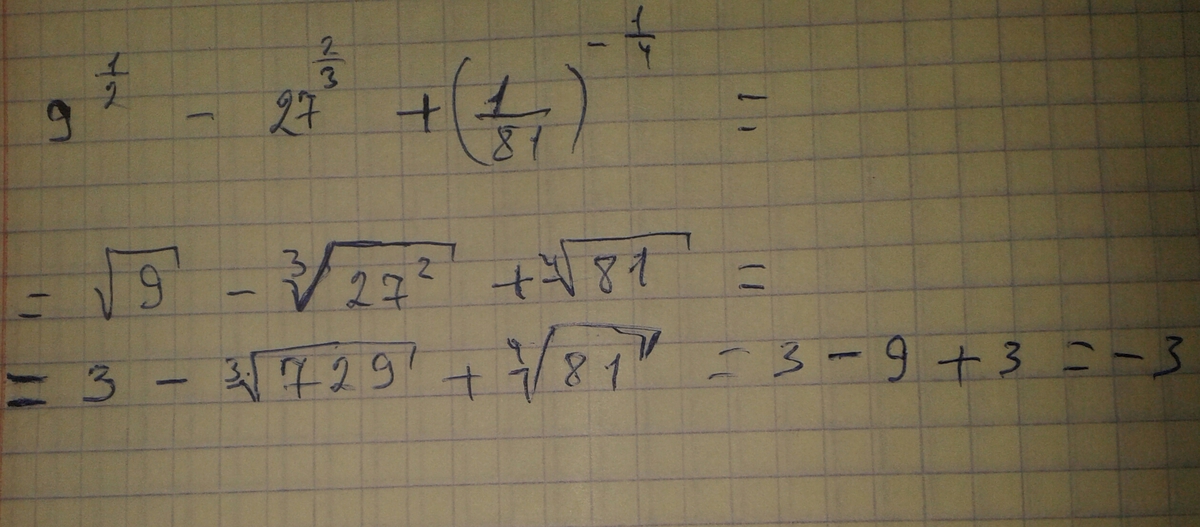 9^{1/2} - 27^{2/3} + (1/81)^{-1/4} =
= √9 - ∛27² + ∜81 =
= 3 - ∛729 + ∜81 = 3 - 9 + 3 = -3